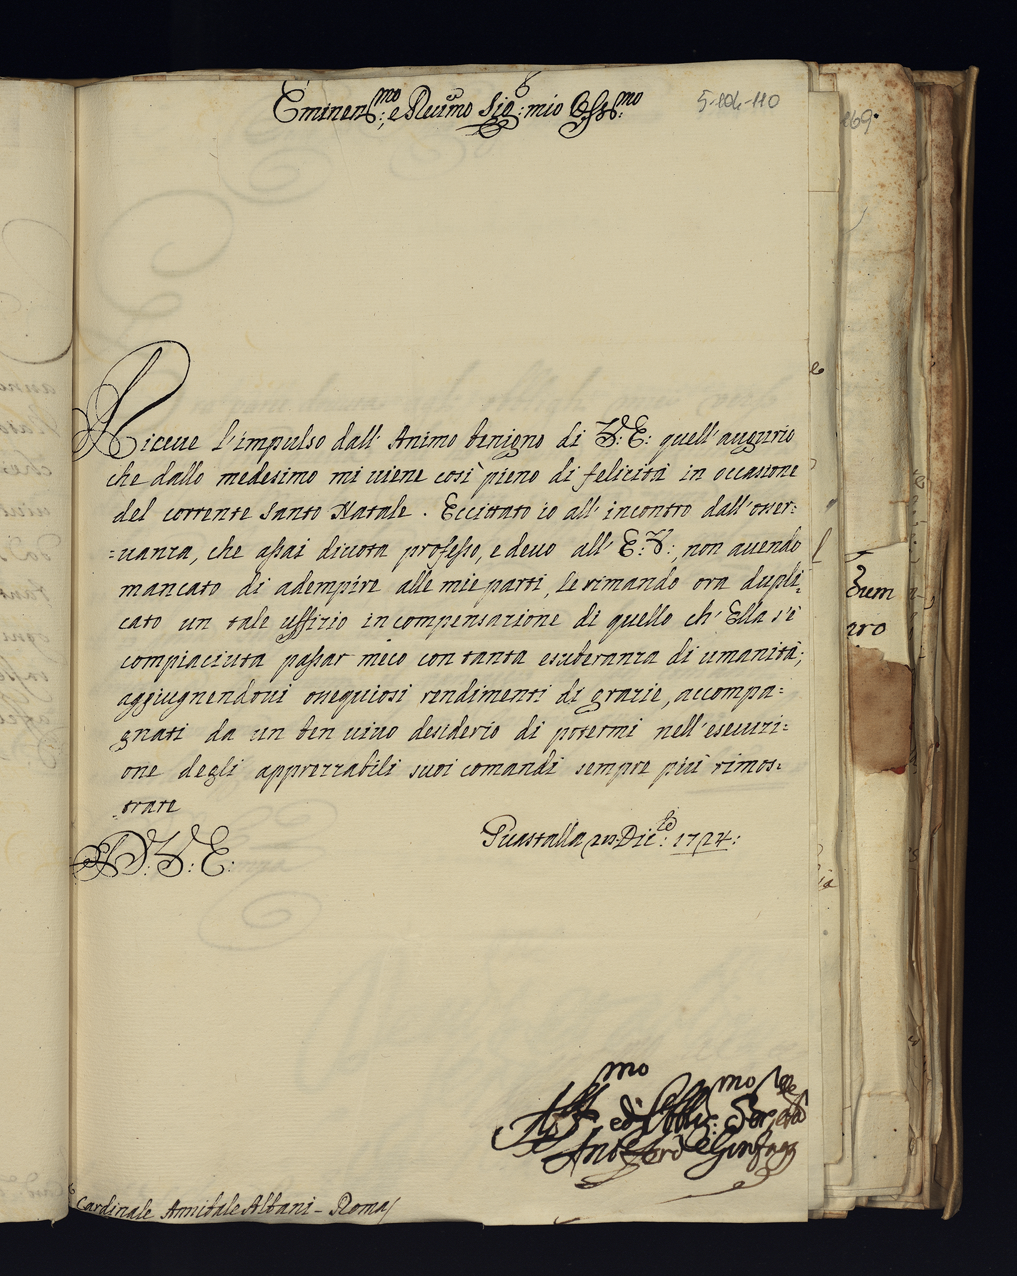 Eminen:mo, e Reuimo Sig:r mio Oss:mo
5-104-110
169.
Riceue l'impulso dall' Animo benigno di V: E: quell'augurio
che dallo medesimo mi uiene così pieno di felicità in occasione
del corrente Santo Natale. Eccittato io all' incontro dall'osser:
=uanza, che assai diuota professo, e deuo all' E: V:, non auendo
mancato di adempire alle mie parti, le rimando ora dupli:
cato un tale uffizio in compensazione di quello ch' Ella s'è
compiaciuta passar meco con tanta esuberanza di umanità;
aggiugnendoui ossequiosi rendimenti di grazie, accompa=
gnati da un ben uiuo desiderio di potermi nell' esecuzi=
one degli apprezzabili suoi comandi sempre più rimos:
trare
D: V: E:
Guastalla 20 Dic:bre 1724:
Aff:mo ed Obblig:mo Ser:re
Ant: Ferd: Gonzaga
Cardinale Annibale Albani - Roma